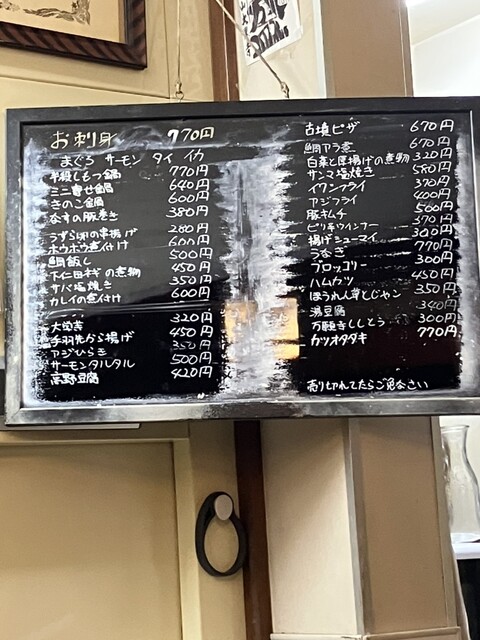 お刺身 770円
まぐろ サーモン タイ イカ
牛殺しもつ鍋 770円
ミニ寄せ鍋 640円
きのこ鍋 600円
なすの豚巻き 380円
うずら卵の串揚げ 280円
ホウボウ煮付け 600円
鯛飯し 500円
下仁田ネギの煮物 450円
サバ塩焼き 350円
カレイの煮付け 600円
320円
手羽先から揚げ 450円
アジひらき 350円
サーモンタルタル 500円
高野豆腐 420円
古墳ピザ 670円
鯛アラ煮 670円
白菜と厚揚げの煮物 320円
サンマ塩焼き 580円
イワシフライ 370円
アジフライ 400円
豚キムチ 500円
ピリ辛ウインナー 370円
揚げシューマイ 300円
うなぎ 770円
ブロッコリー 300円
ハムカツ 450円
ほうれん草とじゃン 350円
湯豆腐 340円
万願寺ししとう 300円
カツオタタキ 770円
売り切れてたらご免なさい